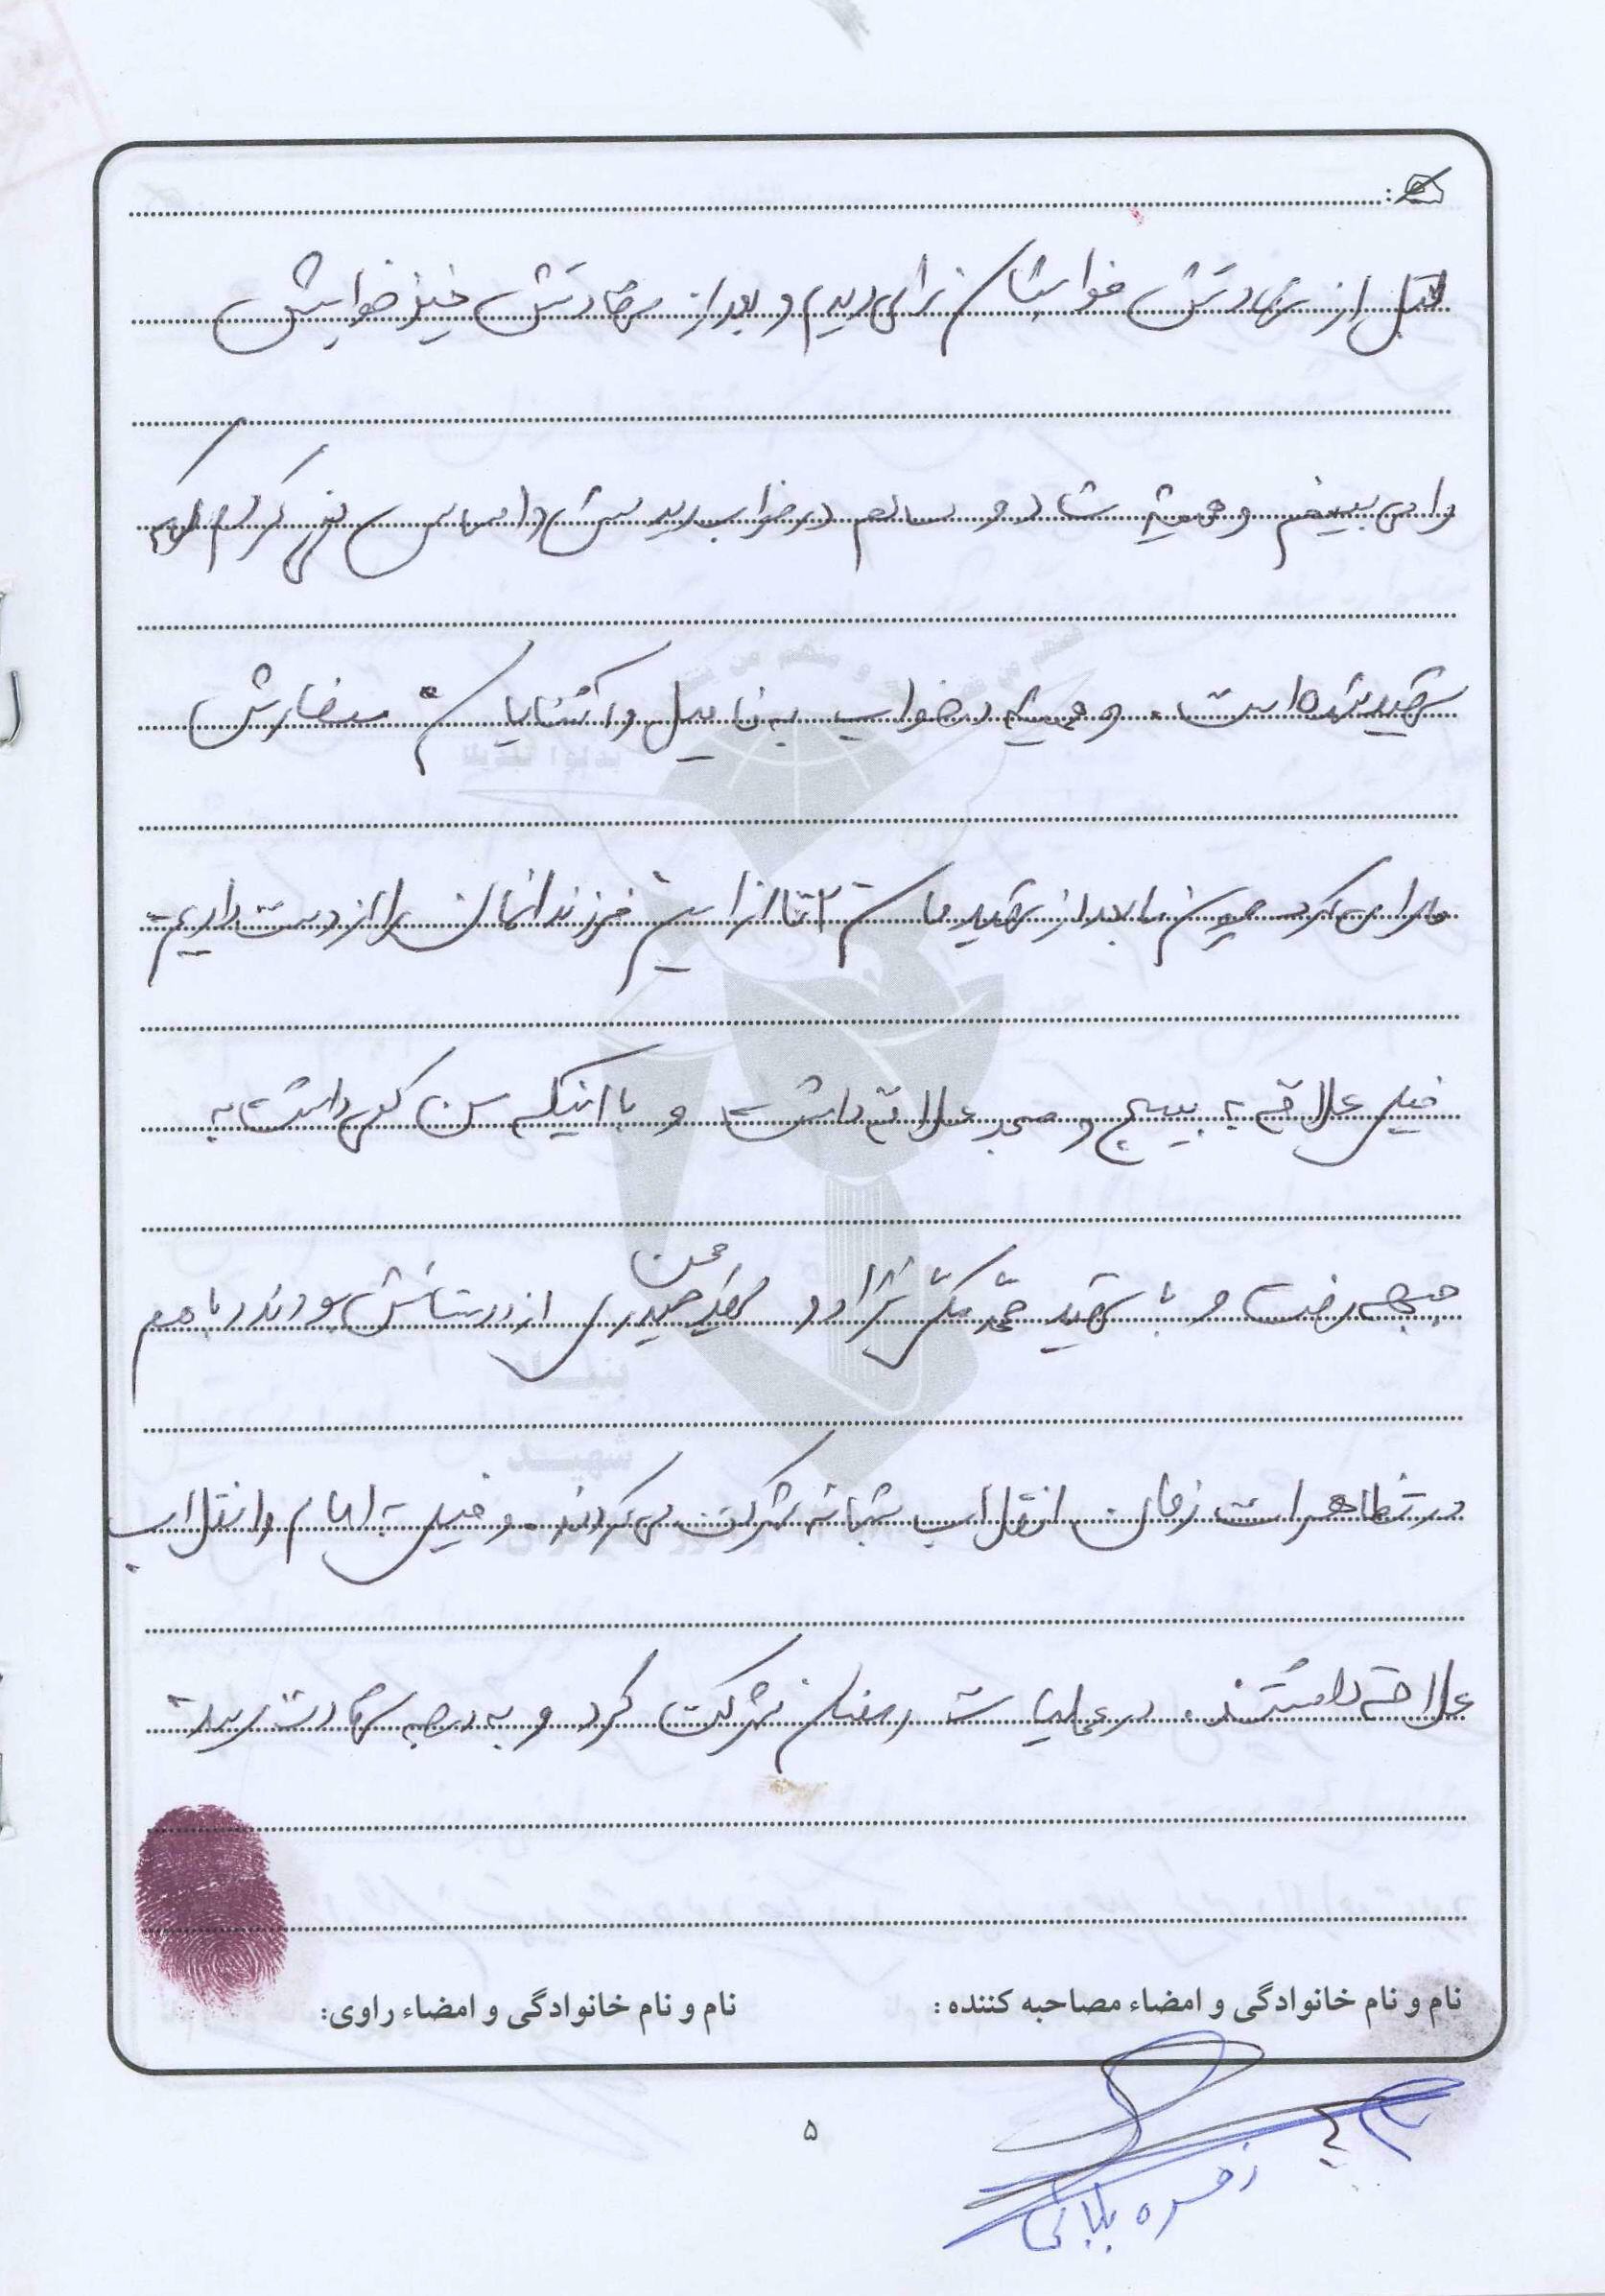 قبل از شهادتش خوابشان را می دیدم و بعد از شهادتش نیز خوابش
را می بینم و همیشه شاد و سالم در خواب دیدمش و احساس نمی کردم که
شهید شده است. و همیشه در خواب به فامیل و آشنایان سفارش
ما را می کرد چون ما بعد از شهید ما ۲ تا از فرزندانمان را از دست دادیم
خیلی علاقه به بسیج و مسجد علاقه داشت و با اینکه سن کمی داشت به
جبهه رفت و با شهید محمد نژاد و شهید محسن حیدری از دوستانش بودند و با هم
در تظاهرات زمان انقلاب شبانه شرکت می کردند. و خیلی به امام و انقلاب
علاقه داشتند. در عملیات رمضان شرکت کرد و به درجه شهادت رسید
نام و نام خانوادگی و امضاء مصاحبه کننده:
نام و نام خانوادگی و امضاء راوی:
۵
زهره بابائی